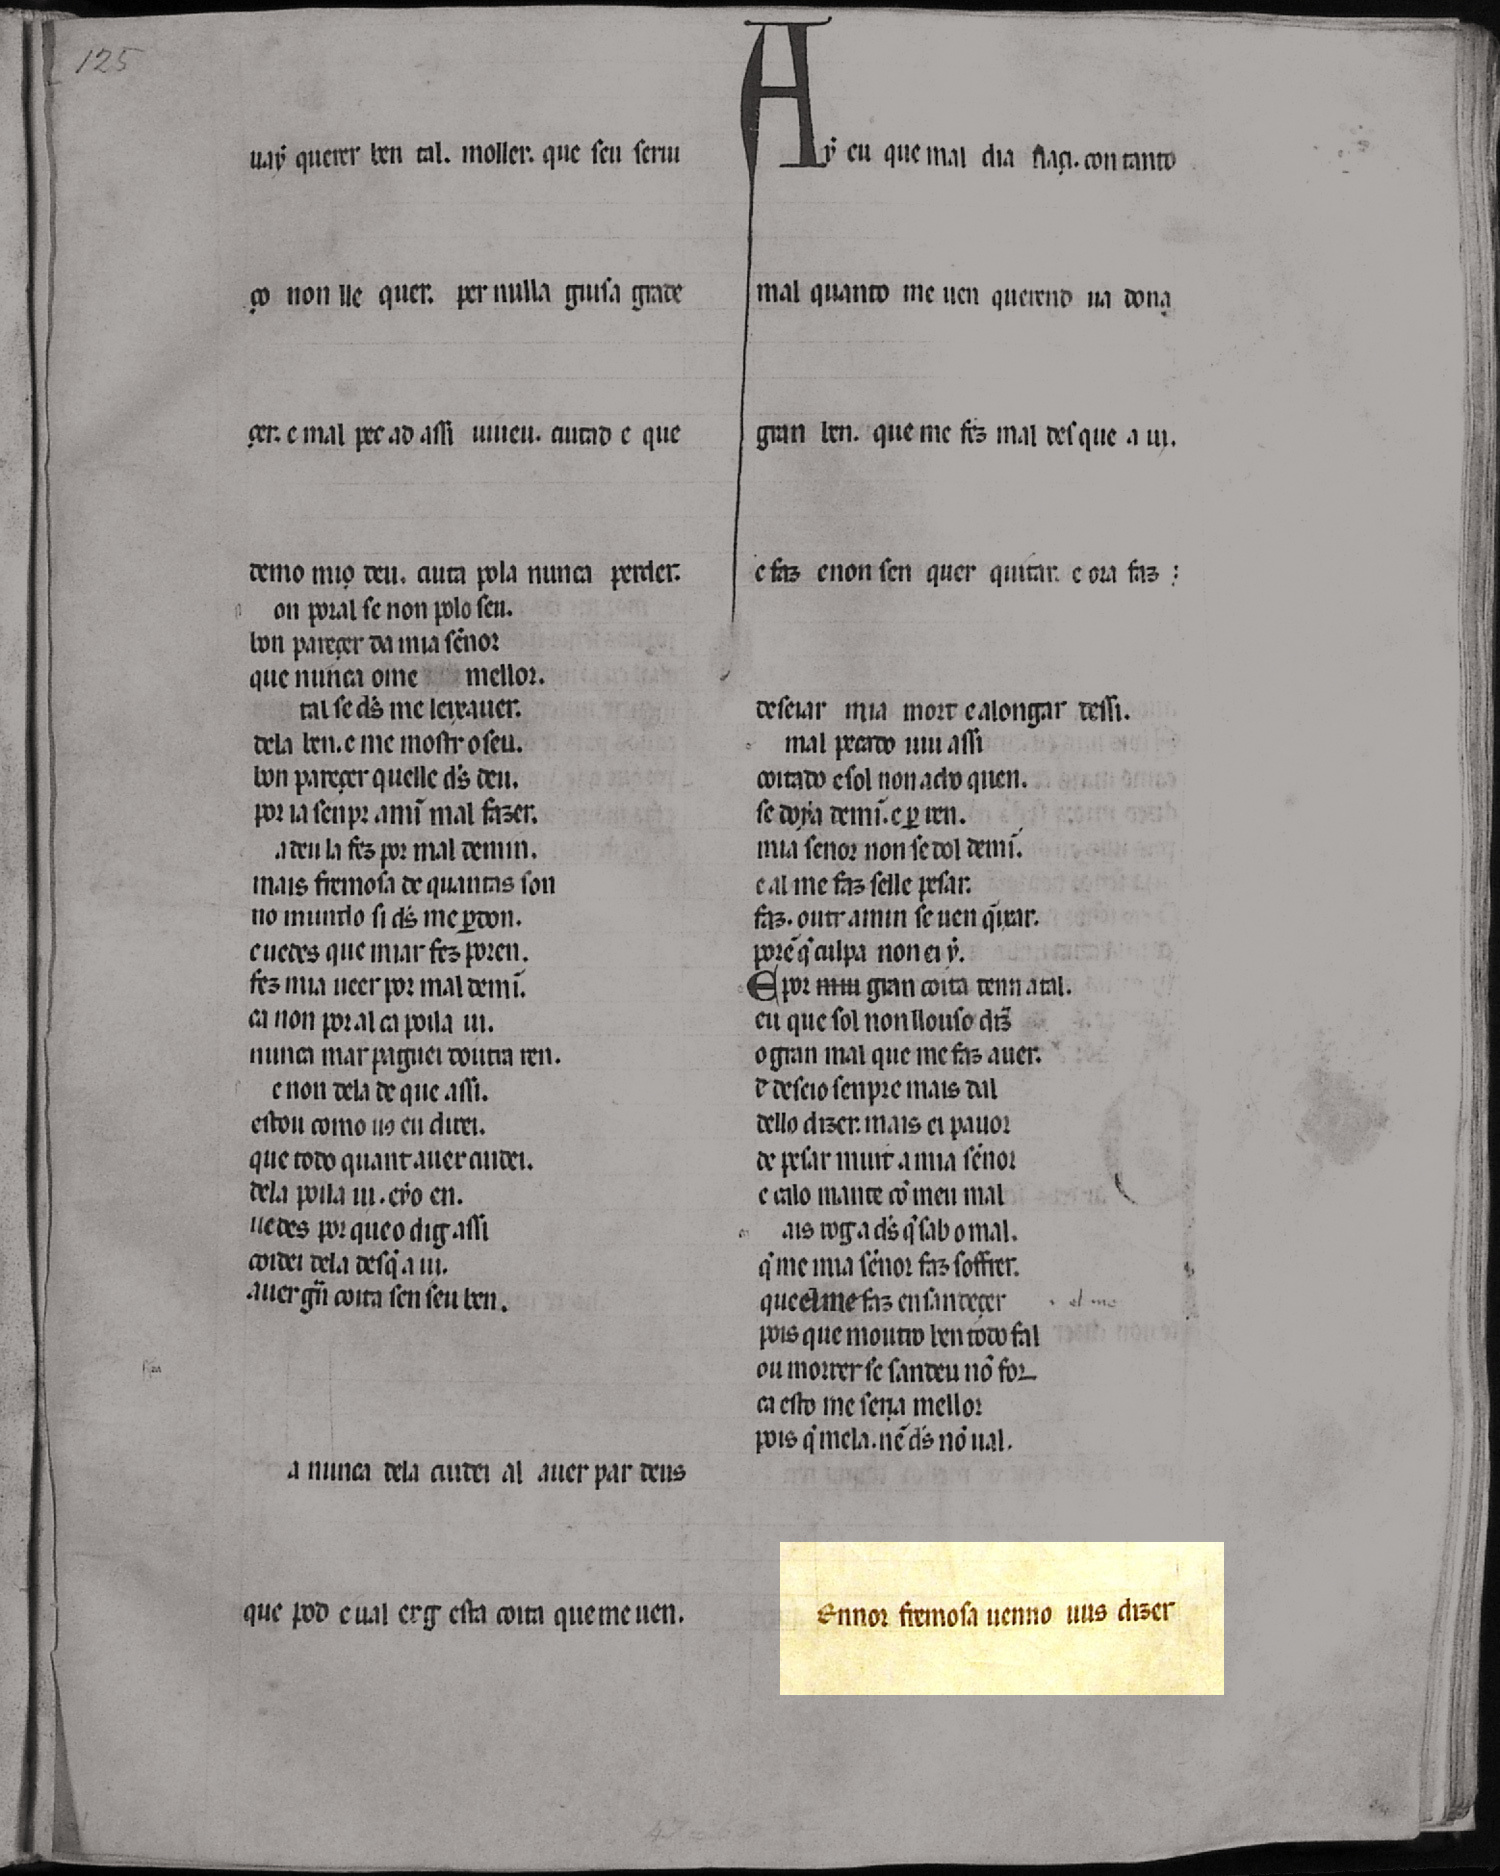 125
uaẏ querer ben tal. moller. que seu serui
ço non lle quer. per nulla guisa grade
çer. e mal pecad assi uiueu. cuidad e que
demo mio deu. cuita pola nunca perder.
on poral se non polo seu.
bon pareçer da mia sẽnor
que nunca ome mellor.
tal se d̃s me leixauer.
dela ben. e me mostr o seu.
bon pareçer quelle d̃s deu.
por ia senpr amĩ mal fazer.
a deu la fez por mal demin.
mais fremosa de quantas son
no mundo si d̃s me ꝑdon.
e uedes que miar fez poren.
fez mia ueer por mal demĩ.
ca non por al ca poila ui.
nunca mar paguei doutra ren.
e non dela de que assi.
estou como uo eu direi.
que todo quant auer cuidei.
dela poila ui. eẏo en.
uedes por que o dig assi
coidei dela desq̃ a ui.
auer grã coita sen seu ben.
a nunca dela cuidei al auer par deus
que pod e ual erg esta coita que me uen.
Aẏ eu que mal dia naçi. con tanto
mal quanto me uen querend ũa dona
gran ben. que me fez mal des que a ui.
e faz e non sen quer quitar. e ora faz :
deseiar mia mort e alongar dessi.
mal pecado uiu assi
coitado e sol non acho quen.
se doẏa demĩ. e ꝑ ren.
mia senor non se dol demĩ.
e al me faz selle pesar.
faz. outr amin se uen q̃ixar.
porẽ q̃ culpa non ei ẏ.
E por gran coita tenn atal.
eu que sol non llouso diz̃
o gran mal que me faz auer.
e deseio senpre mais dal
dello dizer. mais ei pauor
de pesar muit a mia sẽnor
e calo mante cõ meu mal
ais roga d̃s q̃ sab o mal.
q̃ me mia sẽnor faz soffrer.
que el me faz ensandeçer el me
pois que moutro ben todo fal
ou morrer se sandeu nõ for
ca esto me seria mellor
pois q̃ mela. nẽ d̃s nõ ual.
Ennor fremosa uenno uus dizer